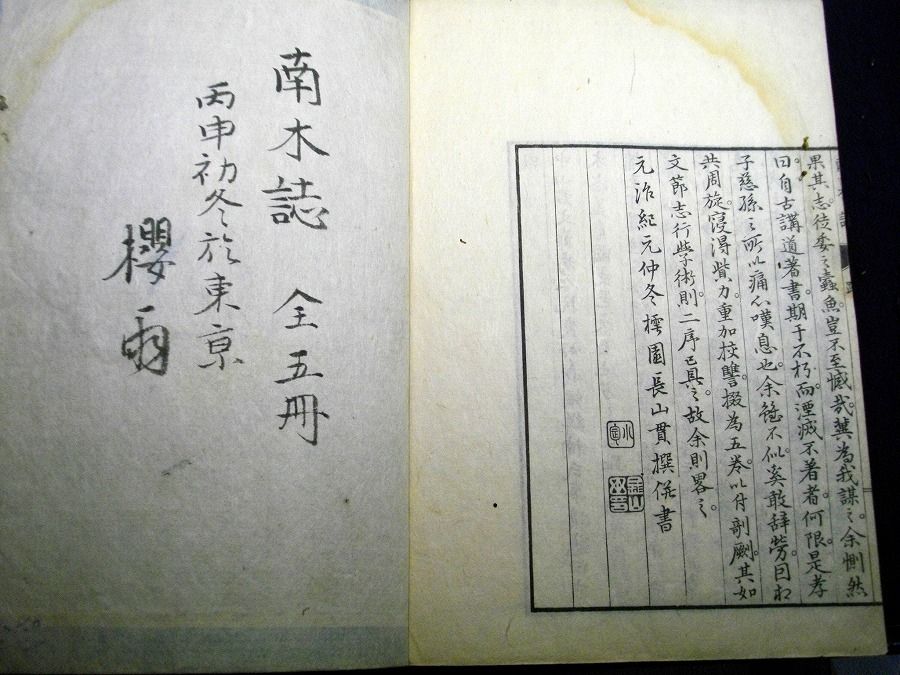 果其志徒委之蠹魚豈不至憾哉冀為我謀之余惻然
曰自古講道著書期于不朽而湮滅不著者何限是孝
子慈孫之所以痛心嘆息也余雖不似奚敢辞勞因相
共周旋寝得貲力重加挍讐掇為五巻以付剞劂其如
文節志行學術則二序已具之故余則畧之
元治紀元仲冬樗園長山貫撰併書
南木誌 全五冊
丙申初冬於東京
櫻雨